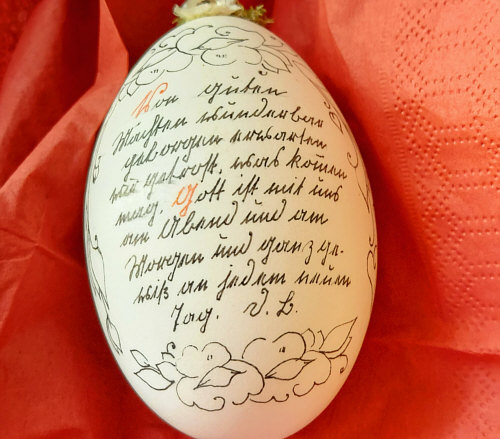 Von guten
Mächten wunderbar
geborgen erwarten
wir getrost, was komen
mag. Gott ist mit uns
am Abend und am
Morgen und ganz ge-
wiß an jedem neuen
Tag. D. B.